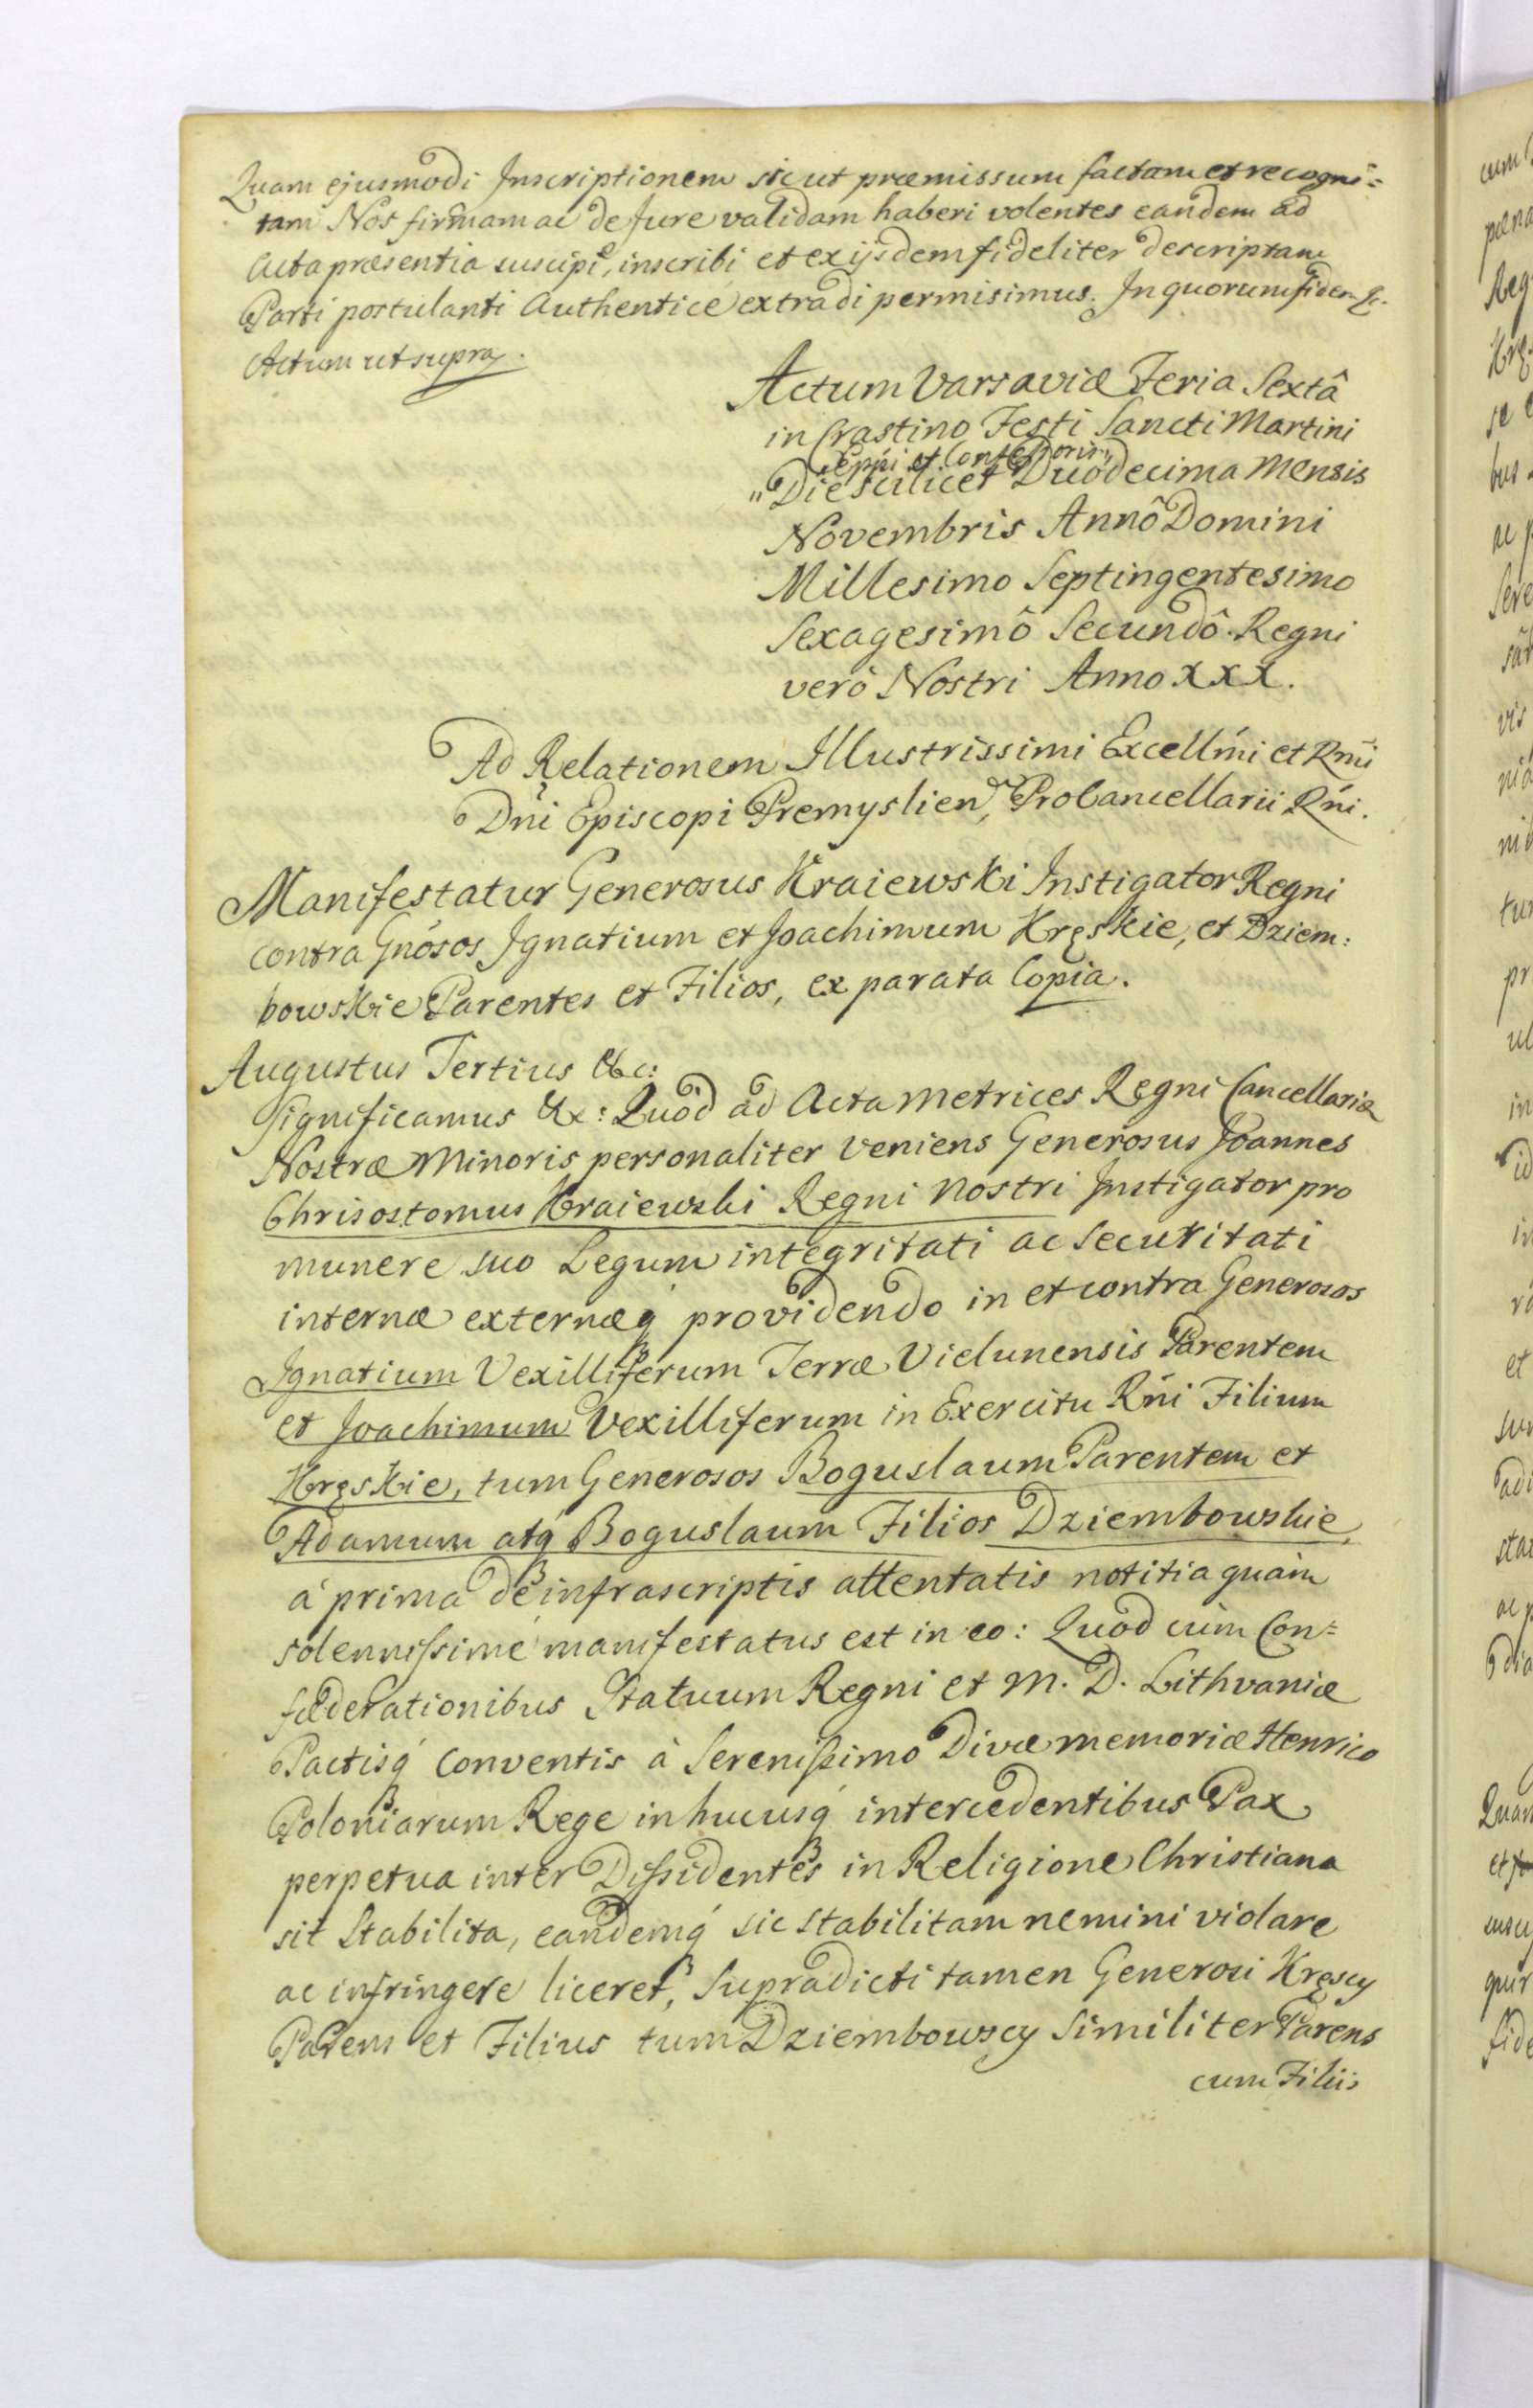 Quam ejusmodi Inscriptionem sicut præmissum factam et recogni=
tam Nos firmam ac de Jure validam haberi volentes eandem ad
Acta præsentia suscipi, inscribi et ex ijsdem fideliter descriptam
Parti postulanti Authenticè extradi permisimus. In quorum fidem &c.
Actum ut supra.
Actum Varsaviæ Feria Sextâ
in Crastino Festi Sancti Martini
"Eppi et Confessoris"
"Die scilicet Duodecima Mensis
Novembris Annô Domini
Millesimo Septingentesimo
Sexagesimô Secundô. Regni
verò Nostri Anno XXX.
Ad Relationem Illustrissimi Excellmi et Rmi
Dni Episcopi Premyslien, ProCancellarii Rni.
Manifestatur Generosus Kraiewski Instigator Regni
contra Gnosos Ignatium et Joachimum Kręskie, et Dziem:
bowskie Parentes et Filios, ex parata Copia.
Augustus Tertius &c:
Significamus &c: Quòd ad Acta Metrices Regni Cancellariæ
Nostræ Minoris personaliter veniens Generosus Joannes
Chrisostomus Kraiewski Regni Nostri Instigator pro
munere suo Legum integritati ac securitati
internæ externæq́ providendo in et contra Generosos
Ignatium Vexilliferum Terræ Vielunensis Parentem
et Joachimum Vexilliferum in Exercitu Rni Filium
Kręskie, tum Generosos Boguslaum Parentem et
Adamum atq́ Boguslaum Filios Dziembowskie,
à prima de infrascriptis attentatis notitia quàm
solennissimè manifestatus est in eo: Quòd cùm Con=
fæderationibus Statuum Regni et M. D. Lithvaniæ
Pactisq́ Conventis à Serenissimo Divæ memoriæ Henrico
Poloniarum Rege in hucusq́ intercedentibus Pax
perpetua inter Dissidentes in Religione Christiana
sit Stabilita, eandemq́ sic stabilitam nemini violare
ac infringere liceret, Supradicti tamen Generosi Kręscy
Parens et Filius tum Dziembowscy Similiter Parens
cum Filiis